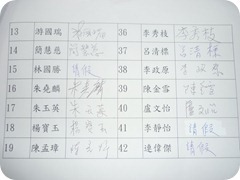 13 游國瑞 36 李秀枝 李秀枝
14 簡慧慈 簡慧慈 37 呂清標 呂清標
15 林國勝 請假 38 李政原
16 朱堯麟 39 陳金霖
17 朱玉英 朱玉英 40 盧文怡
18 楊寶玉 楊寶玉 41 李靜怡 請假
19 陳孟璋 42 連偉傑 請假